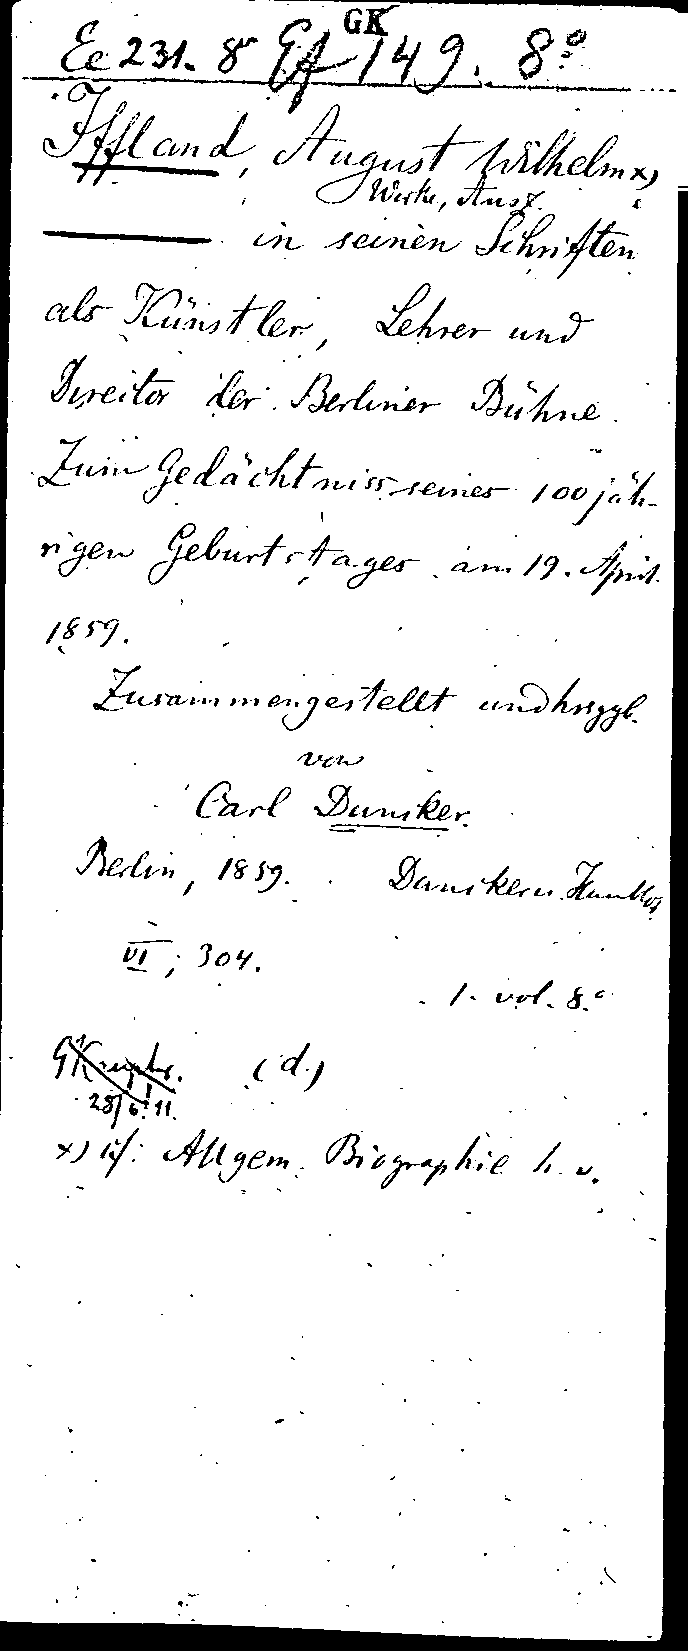 GK
Ee 231. 8° Ef 149. 8°
Iffland, August Wilhelm x)
Werke, Ausz.
——— in seinen Schriften
als Künstler, Lehrer und
Director der Berliner Bühne.
Zum Gedächtniss seines 100jäh-
rigen Geburtstages am 19. April
1859.
Zusammengestellt und hrsggb.
von
Carl Duncker.
Berlin, 1859. Duncker u. Humblot
VI; 304.
1. vol. 8.°
(d.)
28/6. 11.
x) cf: Allgem. Biographie h. v.